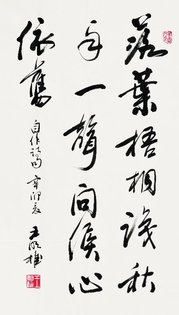 落葉梧桐識秋
一聲問候心
依舊
自作詩句 辛卯夏 王